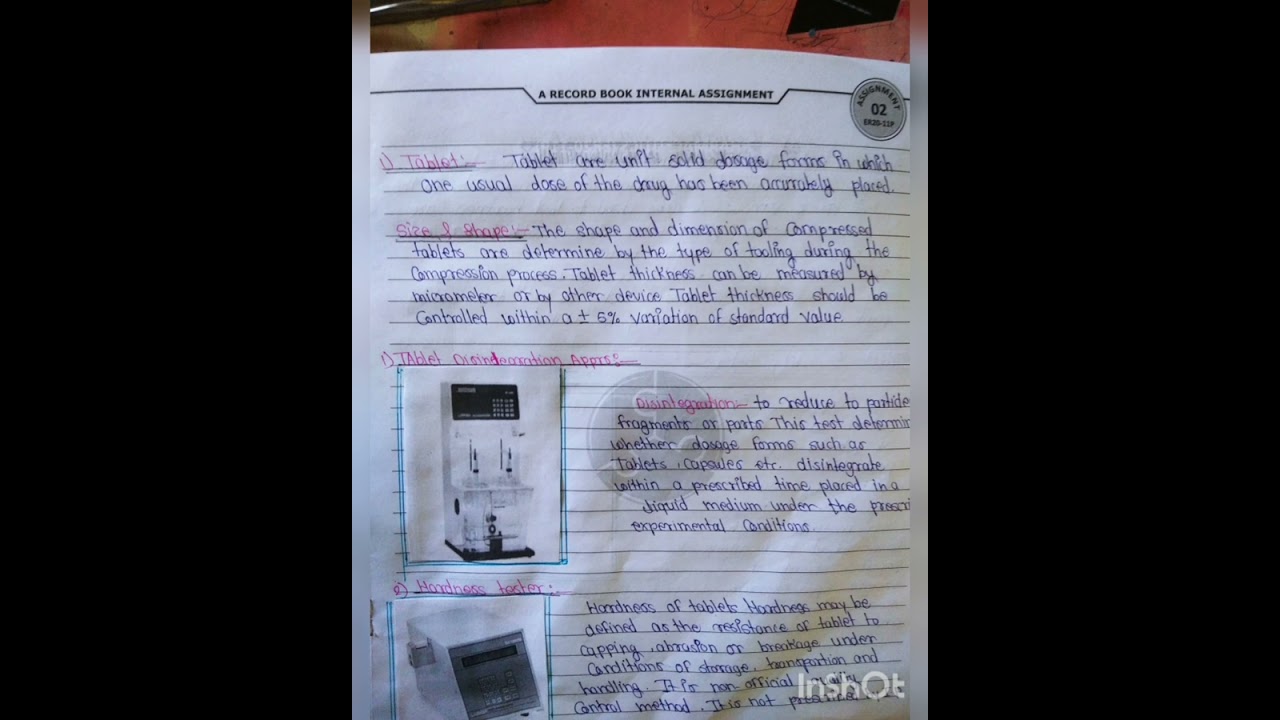 A RECORD BOOK INTERNAL ASSIGNMENT
ASSIGNMENT
02
ER20-11P
1) Tablet:- Tablet are unit solid dosage forms in which
one usual dose of the drug has been accurately placed.
Size & Shape:- The shape and dimension of compressed
tablets are determine by the type of tooling during the
compression process. Tablet thickness can be measured by
micrometer or by other device Tablet thickness should be
controlled within a ± 5% variation of standard value
1) Tablet Disintegration Apprs:-
Disintegration:- to reduce to particle
fragments or parts This test determin
whether dosage forms such as
Tablets, capsules etc. disintegrate
within a prescribed time placed in a
liquid medium under the prescri
experimental conditions.
2) Hardness tester:-
Hardness of tablets Hardness may be
defined as the resistance of tablet to
capping, abrasion or breakage under
conditions of storage, transportion and
handling. It is non-official quality
control method. It is not
InShOt